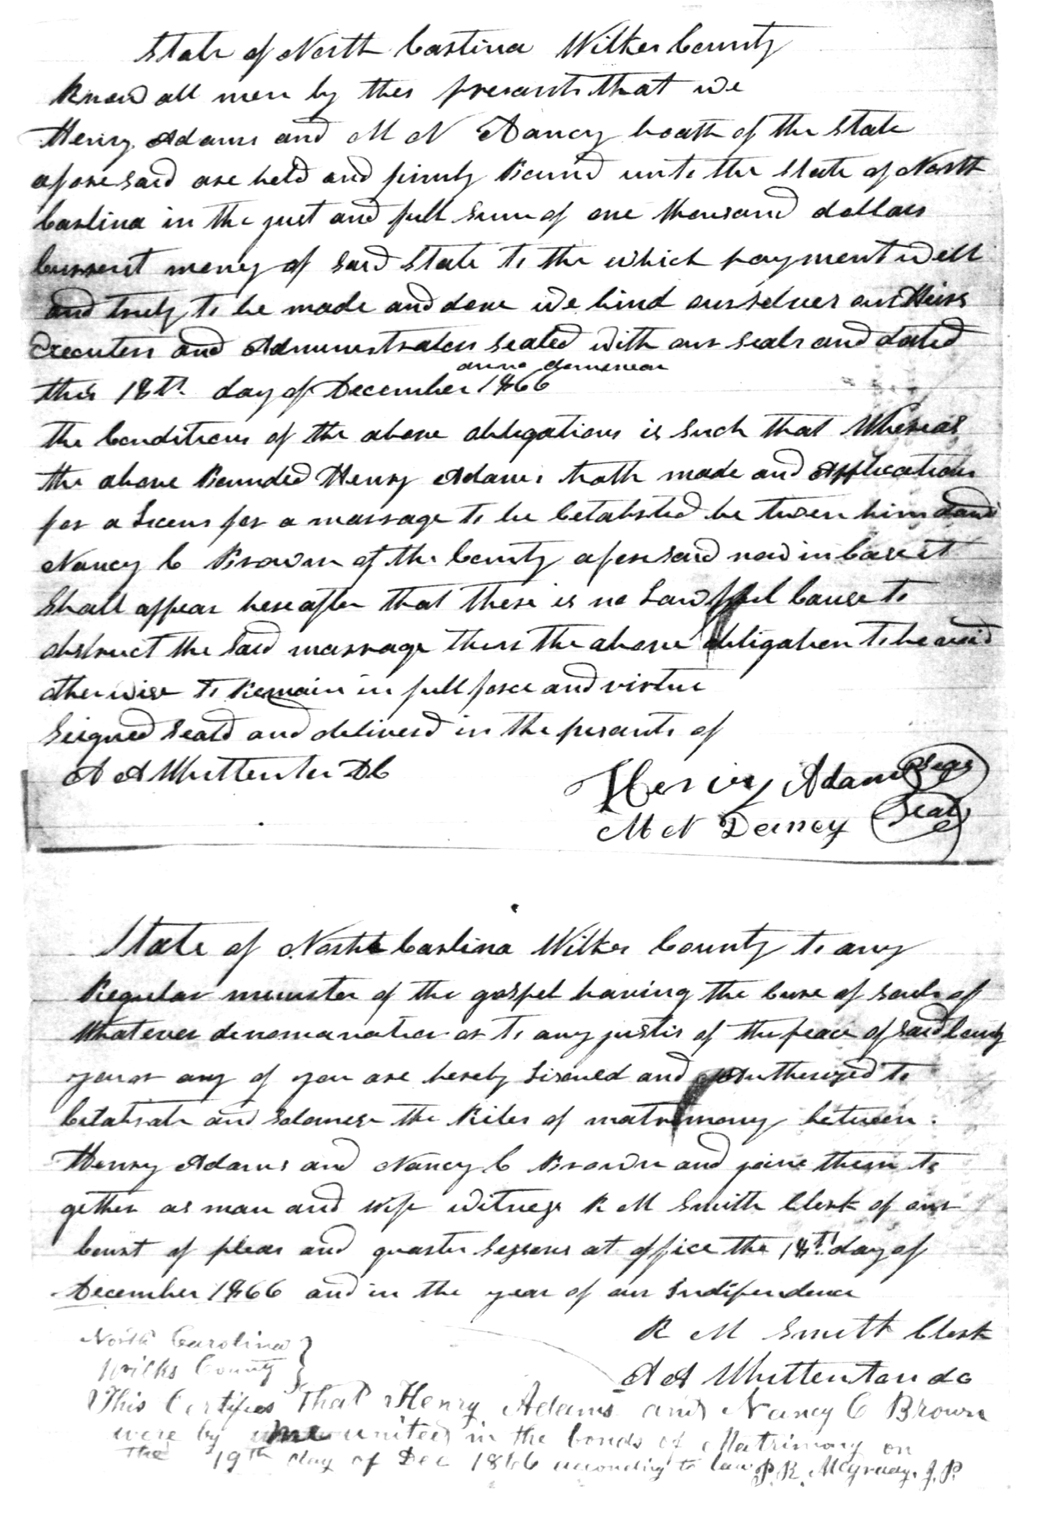 State of North Carlina Wilkes County
Know all men by thes presants that we
Henry Adams and M N Dancy boath of the State
aforesaid are held and firmly Bound unto the State of North
Carlina in the just and full sum of one thousand dollars
Currant money of said State to the which payment well
and truly to be made and done we bind ourselves our Heirs
Executors and Administrators sealed with our seals and dated
anno domenion
this 18th day of December 1866
the Conditions of the above obligations is such that Whereas
the above Bounded Henry Adams hath made and Application
for a for a marrage to be between him and
Nancy C Brown of the County aforesaid now in Case it
Shall appear hereafter that there is no Lawful Cause to
obstruct the said marrage then the above obligation to be void
otherwise to Remain in full force and virtue
Seigned Seald and deliverd in the of
A A Whittenton DC
Henry Adams Seal
M N Dancy Seal
State of North Carlina Wilkes County to any
Regular minister of the gospel having the Cure of souls of
Whatever or to any justis of the peace of said County
you or any of you are hereby and Authorized to
and the Rites of matrimony between
Henry Adams and Nancy C Brown and joine them to
gether as man and wife witness R M Smith Clerk of our
Court of pleas and quarter at office the 18th day of
December 1866 and in the year of our Indipendence
R M Smith Clerk
A A Whittenton dc
North Carolina
Wilks County
This Certifies that Henry Adams and Nancy C Brown
were by me united in the bonds of Matrimony on
the 19th day of Dec 1866 according to law P. R. McGrady. J. P.